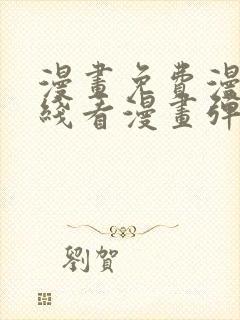 漫畫免費漫
綫看漫畫彈
劉賀